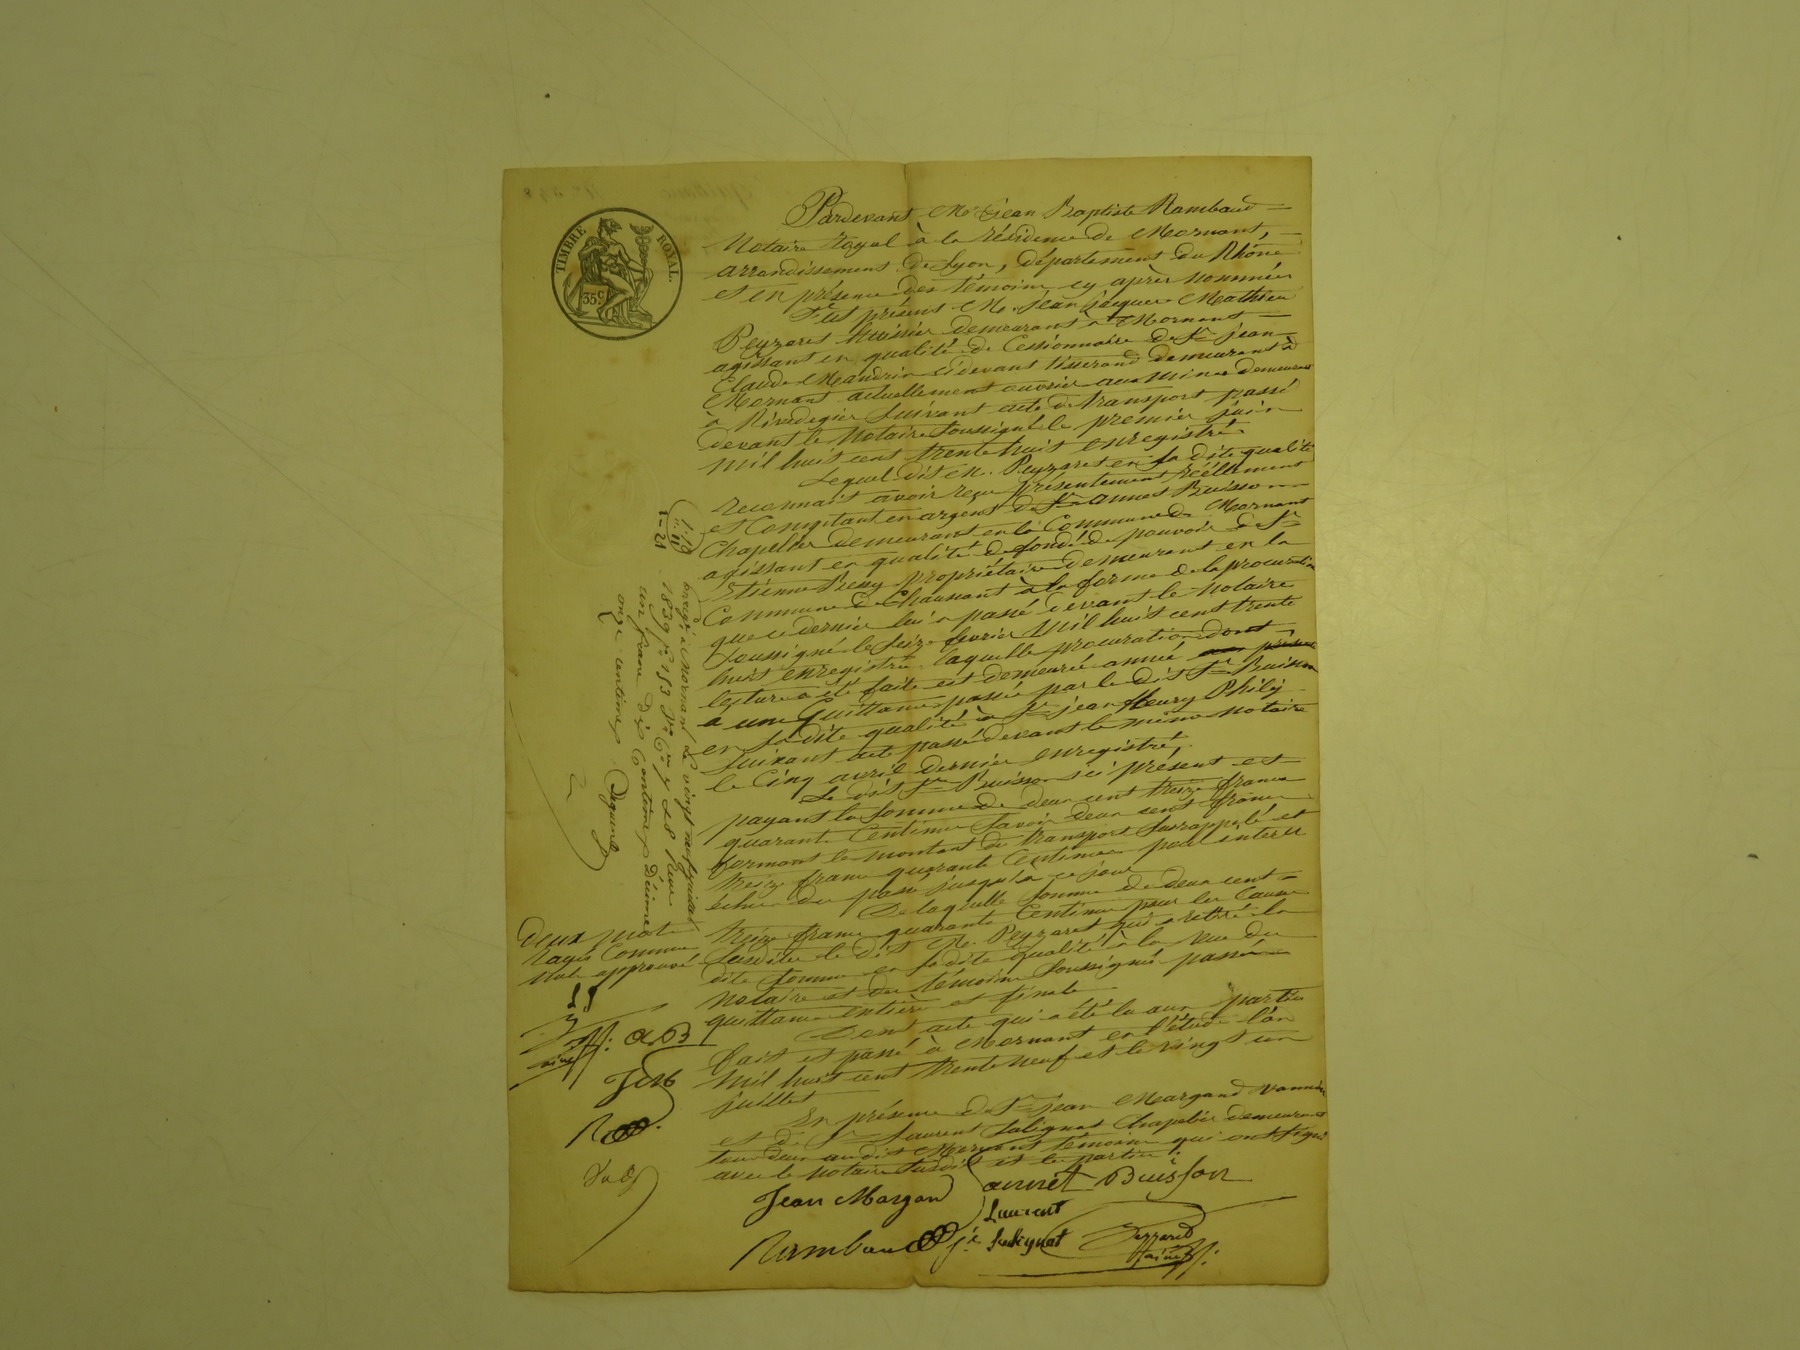 TIMBRE ROYAL.
35c
Pardevant Me Jean Baptiste Rambaud
Notaire Royal à la résidence de Mornant,
arrondissement de Lyon, département du Rhône
et en présence des témoins cy après nommés
Fut présent M. Jean Jacques Mathieu
Peyzaret huissier demeurant à Mornant
agissant en qualité de Cessionnaire de Sr jean
Claude Mandrin cidevant tisserand demeurant à
Mornant actuellement ouvrier aux mines demeurant
à Rivedegier suivant acte de transport passé
devant le Notaire soussigné le premier juin
mil huit cent trente huit enregistré.
Lequel dit M. Peyzaret en sa dite qualité
reconnait avoir reçu présentement réellement
et Comptant en argent de Sr annet Buisson
Chapelier demeurant en la Commune de Mornant
agissant en qualité de fondé de pouvoir de Sr
Etienne propriétaire demeurant en la
Commune de Chaussant à la forme de la procuration
que ce dernier lui a passé devant le Notaire
soussigné le seize fevrier mil huit cent trente
huit enregistré, laquelle procuration dont
lecture a été faite est demeurée annéé
à une Quittance passée par le dit Sr Buisson
en sa dite qualité à Sr jean fleury Philij
suivant acte passé devant le même Notaire
le Cinq avril dernier enregistré,
Le dit Sr Buisson ici présent et
payant la somme de deux cent treize francs
quarante Centimes savoir deux cent francs
formant le montant du transport susrappelé et
treize francs quarante Centimes pour intérêts
échus du passé jusqu'à ce jour
De laquelle somme de deux cent
treize francs quarante Centimes pour les Causes
susdites le dit M. Peyzaret qui a retiré la
dite somme en sa dite qualité à la vue du
Notaire et des témoins soussignés passé
quittance entière et finale
Dont acte qui a été lu aux parties
fait et passé à Mornant en l'étude l'an
mil huit cent trente neuf et le vingt un
juillet
En présence de Sr jean Margand vannier
et de Sr Laurent Salignat Chapelier demeurant
tous deux au dit Mornant témoins qui ont signé
avec le notaire susdit et les parties;
Jean Margand annet Buisson
Laurent
Rambaud Salignat
ainé
1-21
Enregé à Mornant le vingt neuf juillet
1839 fo 153 Vo Cse 7 & 8 Reçu
un franc dix Centimes Décime
onze centimes
Deux mots
Rayés Comme
nuls approuvé
aB